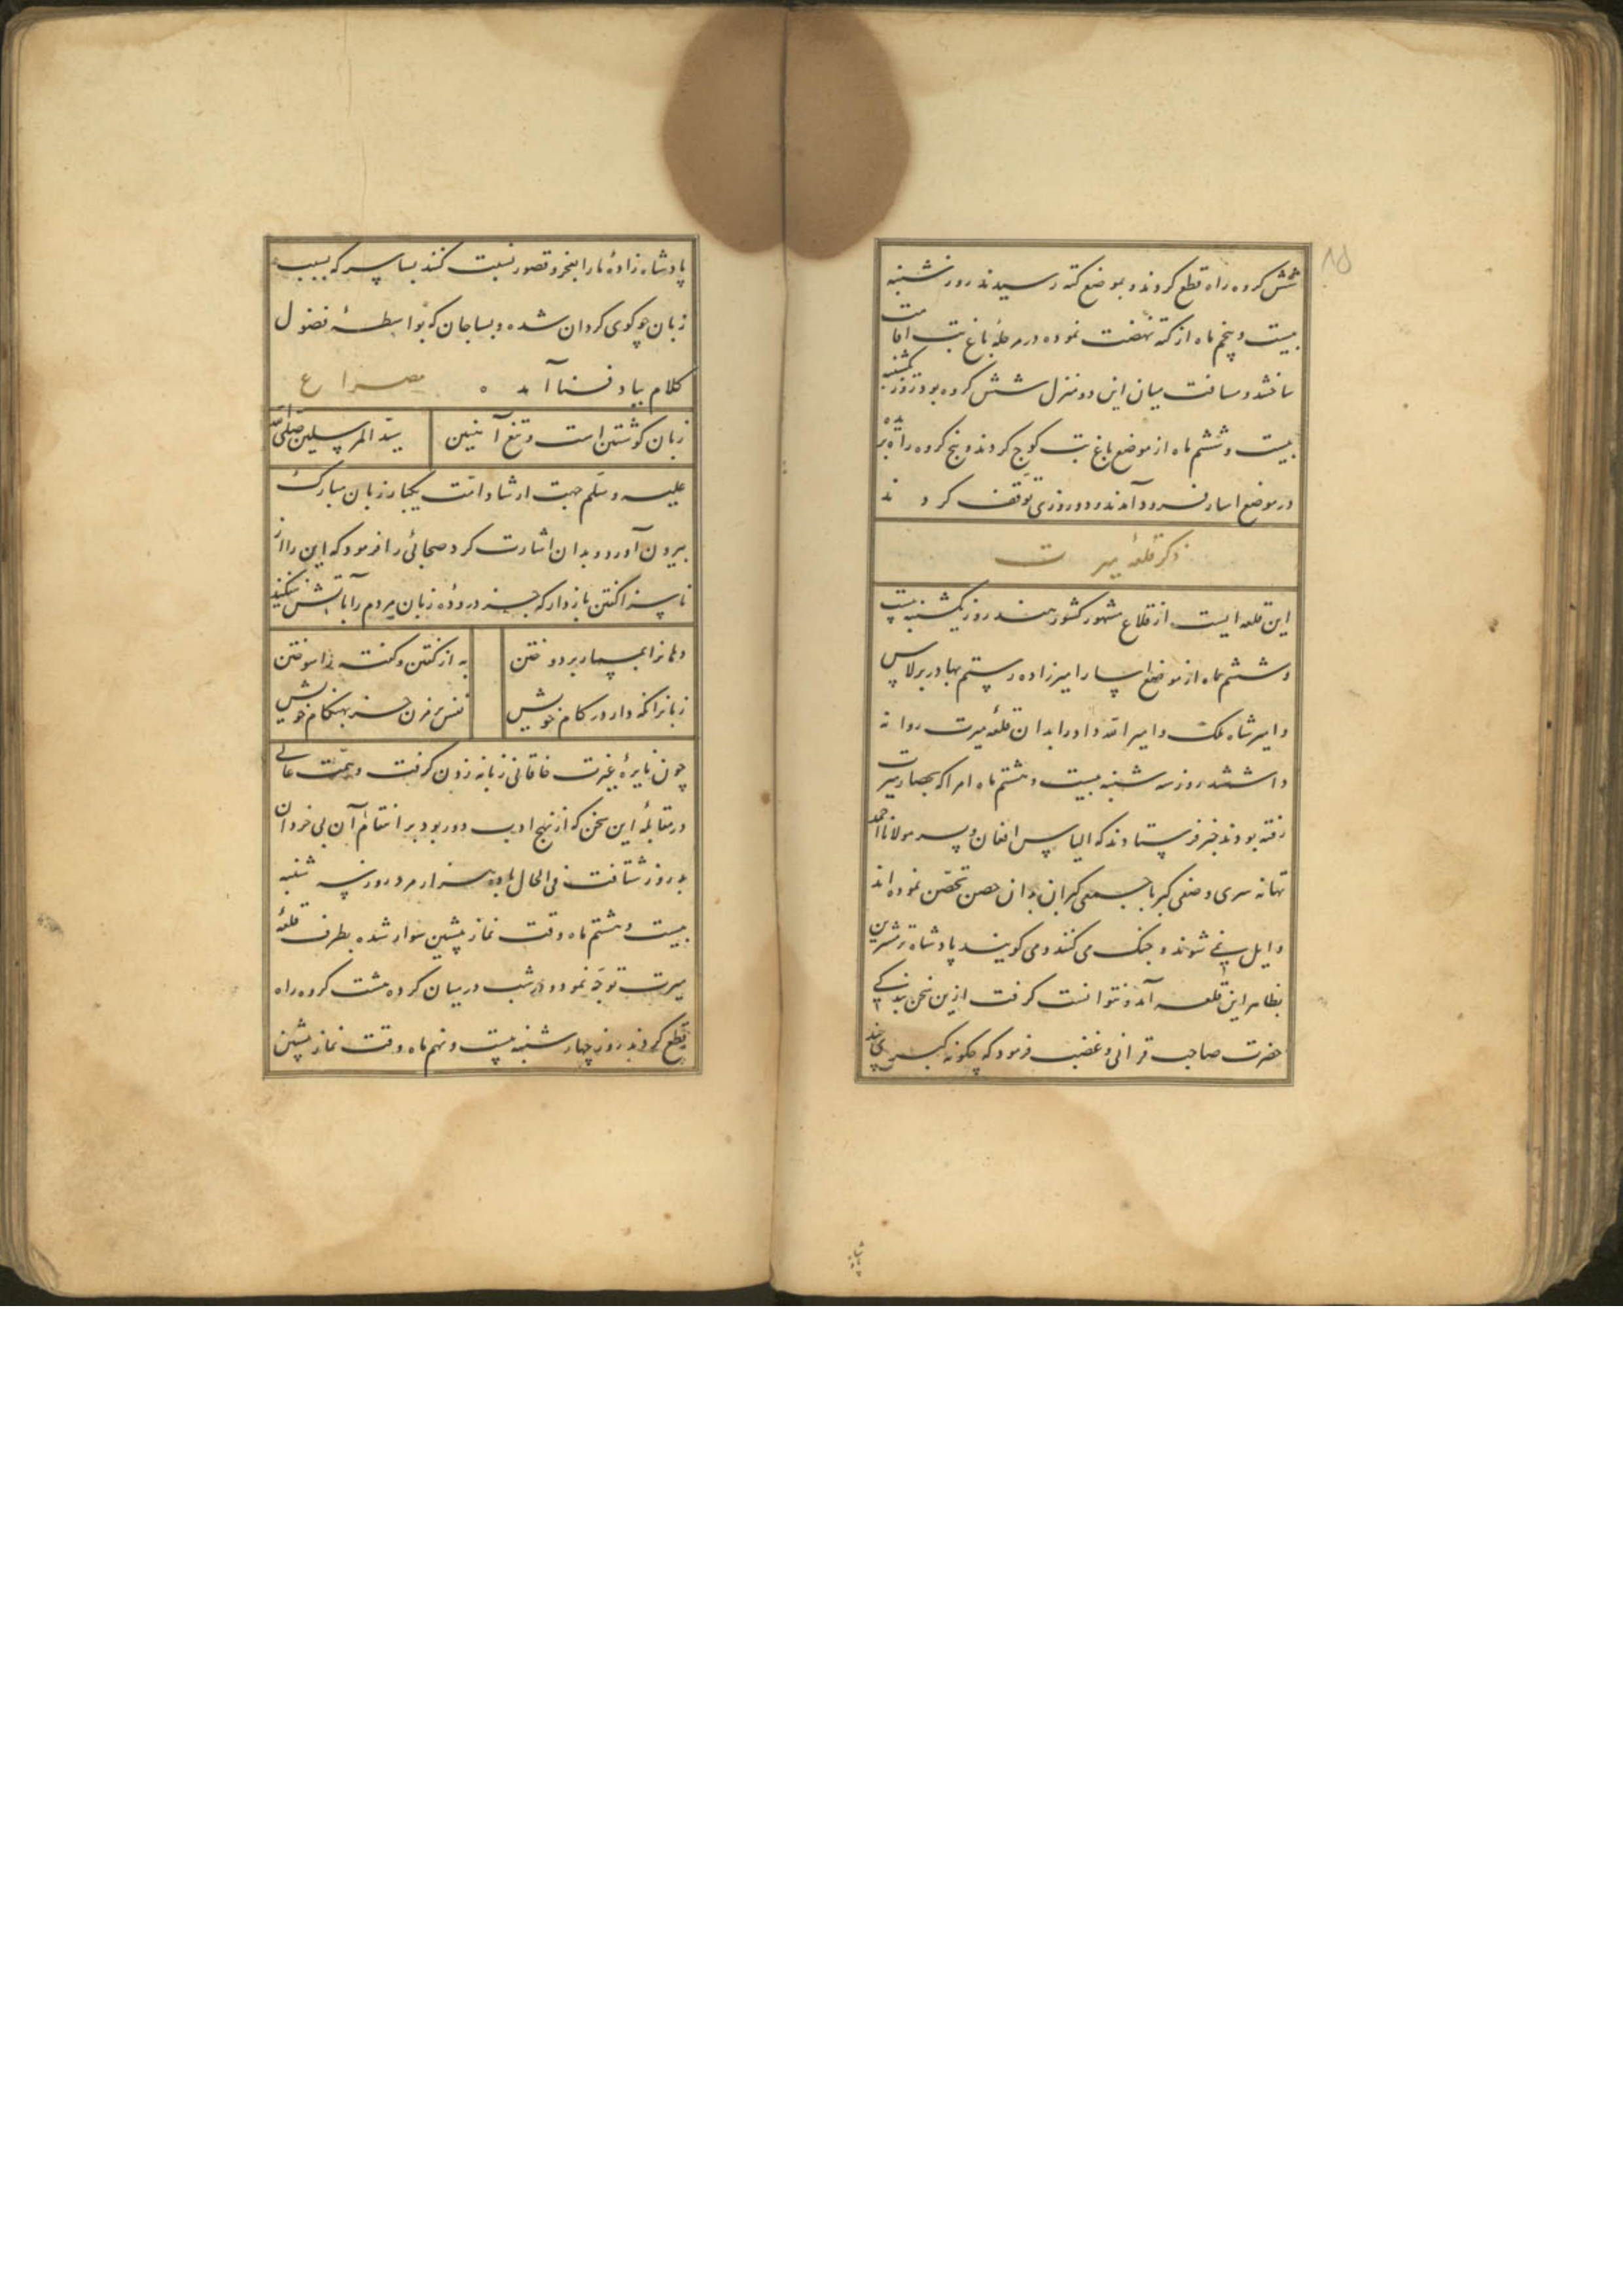 ۸۵
شش کروه راه قطع کردند و بموضع کته رسیدند روز شنبه
بیست و پنجم ماه از کته نهضت نموده در مرحلهٔ باغ بت اقامت
ساختند و مسافت میان این دو منزل شش کروه بود روز یکشنبه
بیست و ششم ماه از موضع باغ بت کوچ کردند و پنج کروه راه بریده
در موضع اسار فرود آمدند و دو روز توقف کردند
ذکر قلعهٔ میرت
این قلعه ایست از قلاع مشهور کشور هند روز یکشنبه بیست
و ششم ماه از موضع اسار امیرزاده رستم بهادر برلاس
و امیر شاه ملک و امیر الله داد را بدان قلعهٔ میرت روانه
داشتند روز سه شنبه بیست و هشتم ماه امرا که بحصار میرت
رفته بودند خبر فرستادند که الیاس افغان و پسر مولانا احمد
تهانه سری و صفی کبر با جمعی کبران بدان حصن تحصن نموده اند
و ایل نمی شوند و جنک می کنند و می کویند پادشاه ترمشرین
بظاهر این قلعه آمد و نتوانست کرفت ازین سخن بندکی
حضرت صاحب قرانی و غضب فرمود که چکونه کسی
پادشاه زادهٔ ما را بعجز و قصور نسبت کند بسا سر که بسبب
زبان چو کوی کردان شده و بسا جان که بواسطهٔ فضول
کلام بباد فنا آمد ه مصراع
زبان کوشتین است و تیغ آهنین سید المرسلین صلی الله
علیه و سلم جهت ارشاد امت یکبار زبان مبارک
بیرون آورد و بدان اشارت کرد صحابی را فرمود که این را از
ناسزا کفتن باز دار که جز دروده زبان مردم را باتش نفکند
دهانرا بمسمار بر دوختن به از کفتن و کفته را سوختن
زبانرا نکه دار در کام خویش نفس بر مزن جز بهنکام خویش
چون نایرهٔ غیرت خاقانی زبانه زدن کرفت و همت عالی
در مقابلهٔ این سخن که از نهج ادب دور بود بر انتقام آن بی خردان
بد روز شتافت فی الحال با ده هزار مرد روز سه شنبه
بیست و هشتم ماه وقت نماز پیشین سوار شده بطرف قلعهٔ
میرت توجه نمود و شب در میان کرده هشت کروه راه
قطع کردند روز چهار شنبه بیست و نهم ماه وقت نماز پیشین